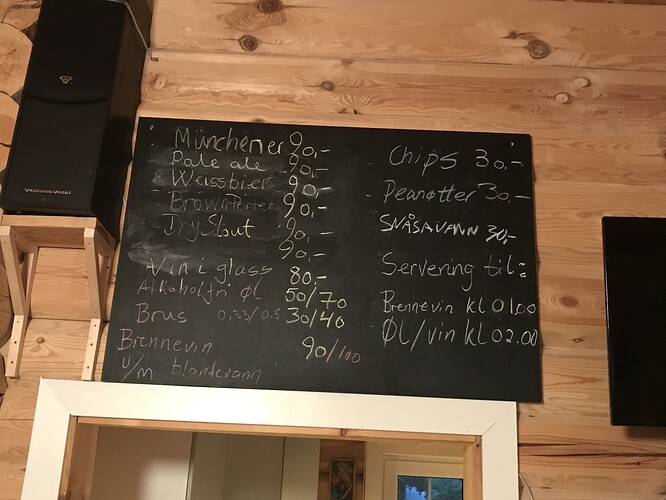 Münchener 90,-
Pale ale 90,-
Weissbier 90,-
Brown Porter 90,-
Dry Stout 90,-
90,-
Vin i glass 80,-
Alkoholfri øl 50/70
Brus 0,33/0.5 30/40
Brennevin 90/100
u/m blandevann
Chips 30,-
Peanøtter 30,-
SNÅSAVANN 30,-
Servering til:
Brennevin kl 01.00
Øl/vin kl 02.00